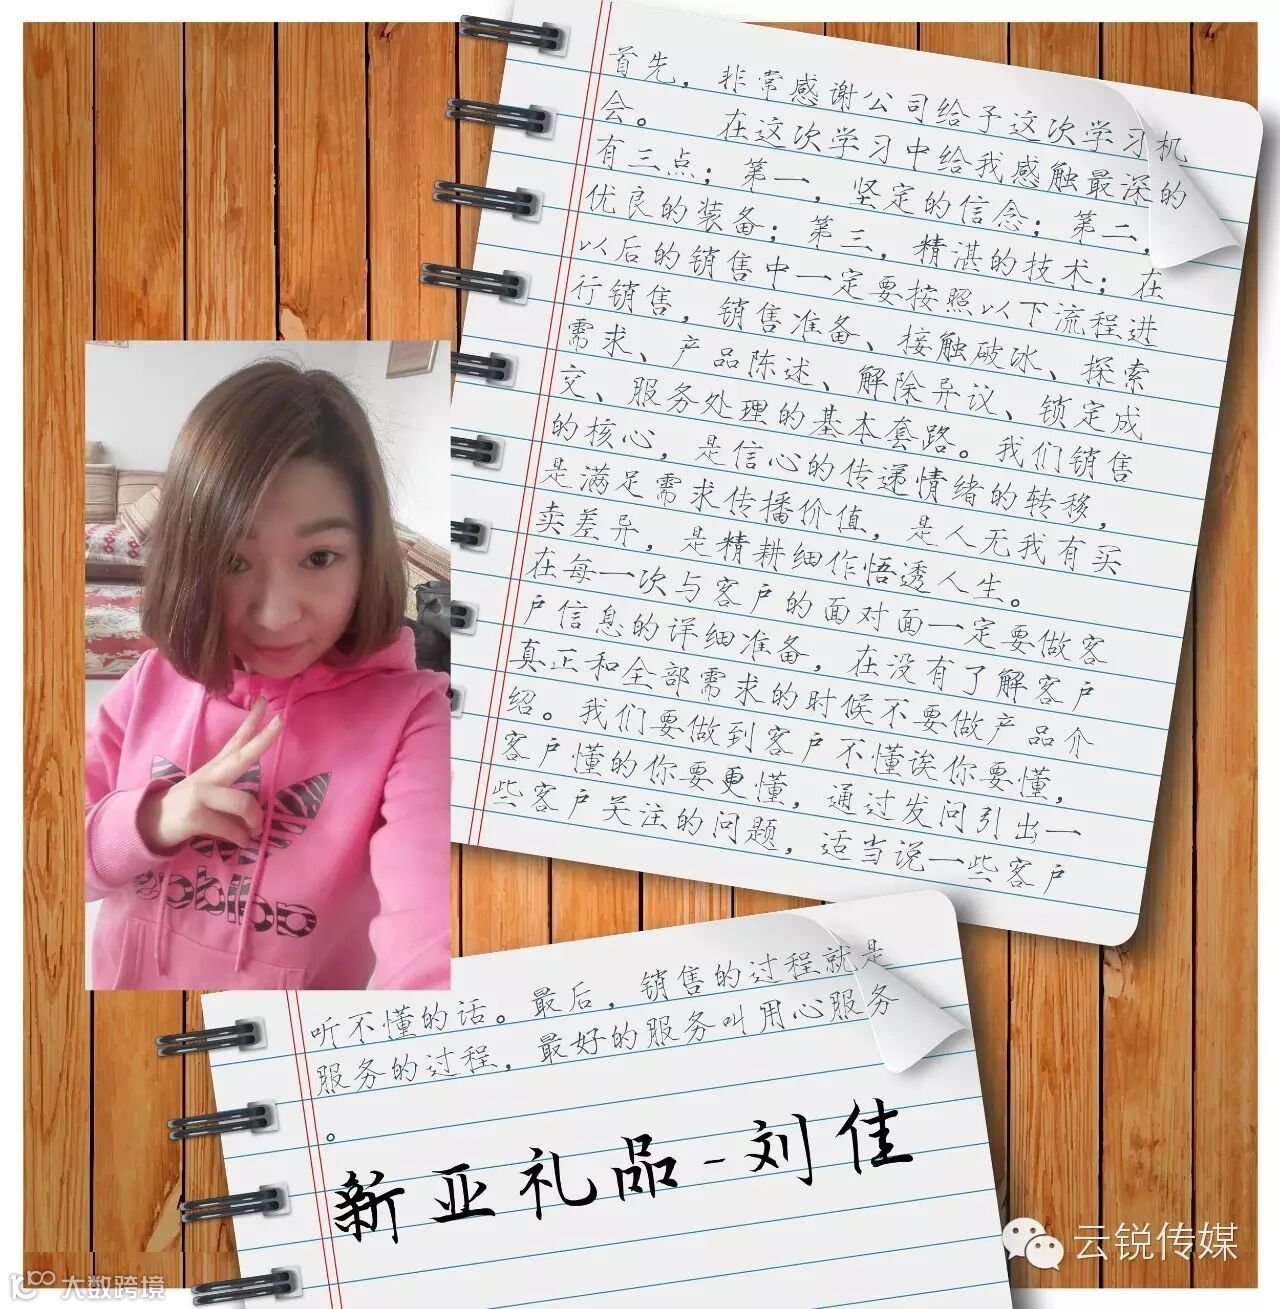 首先，非常感谢公司给予这次学习机
会。 在这次学习中给我感触最深的
有三点；第一，坚定的信念；第二，
优良的装备；第三，精湛的技术；在
以后的销售中一定要按照以下流程进
行销售，销售准备、接触破冰、探索
需求、产品陈述、解除异议、锁定成
交、服务处理的基本套路。我们销售
的核心，是信心的传递情绪的转移，
是满足需求传播价值，是人无我有买
卖差异，是精耕细作悟透人生。
在每一次与客户的面对面一定要做客
户信息的详细准备，在没有了解客户
真正和全部需求的时候不要做产品介
绍。我们要做到客户不懂诶你要懂，
客户懂的你要更懂，通过发问引出一
些客户关注的问题，适当说一些客户
听不懂的话。最后，销售的过程就是
服务的过程，最好的服务叫用心服务
。
新亚礼品-刘佳
adidas
云锐传媒
大数跨境